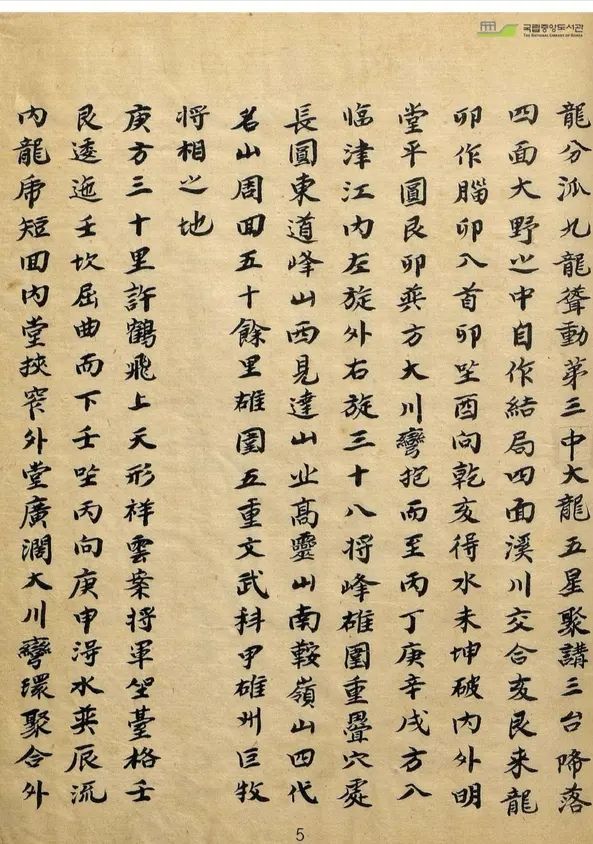 국립중앙도서관
THE NATIONAL LIBRARY OF KOREA
龍分派九龍聳動第三中大龍五星聚講三台降落
四面大野之中自作結局四面溪川交合亥艮来龍
卯作腦卯入首卯坐酉向乾亥得水未坤破内外明
堂平圓艮卯巽方大川彎抱而至丙丁庚辛戌方入
临津江内左旋外右旋三十八将峰雄圍重疊穴處
長圓東道峰山西見達山北高靈山南鞍嶺山四代
名山周回五十餘里雄圍五重文武科甲雄州巨牧
将相之地
庚方三十里許鶴飛上天形祥雲案将軍坐臺格壬
艮逶迤壬坎屈曲而下壬坐丙向庚申得水巽辰流
内龍虎短回内堂挾窄外堂廣濶大川彎環聚合外
5